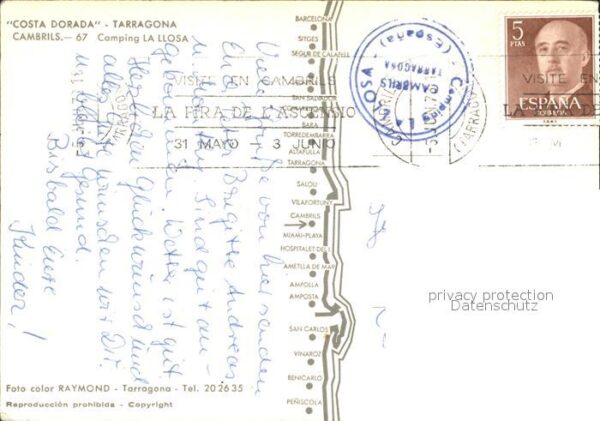 "COSTA DORADA" - TARRAGONA
CAMBRILS.— 67 Camping LA LLOSA
BARCELONA
SITGES
SEGUR DE CALAFELL
SAN SALVADOR
BARA
TORREDEMBARRA
ALTAFULLA
TARRAGONA
SALOU
VILAFORTUNY
CAMBRILS
MIAMI-PLAYA
HOSPITALET DEL I.
AMETLLA DE MAR
AMPOLLA
AMPOSTA
SAN CARLOS
VINAROZ
BENICARLO
PEÑISCOLA
VISITE EN CAMBRILS
LA FIRA DE L'ASCENCIO
31 MAYO - 3 JUNIO
Camping LA LLOSA
CAMBRILS
TARRAGONA
(España)
5
PTAS
ESPAÑA
CORREOS
VISITE EN
LA FIRA DE
Viele Grüße von hier senden
Brigitte Andreas
Sind gut an-
gekommen. Wetter ist gut
Herzlichen Glückwunsch und
alles Gute wünschen wir Dir.
bleibt gesund.
Bis bald Eure
Kinder!
privacy protection
Datenschutz
Foto color RAYMOND - Tarragona - Tel. 20 26 35
Reproducción prohibida - Copyright